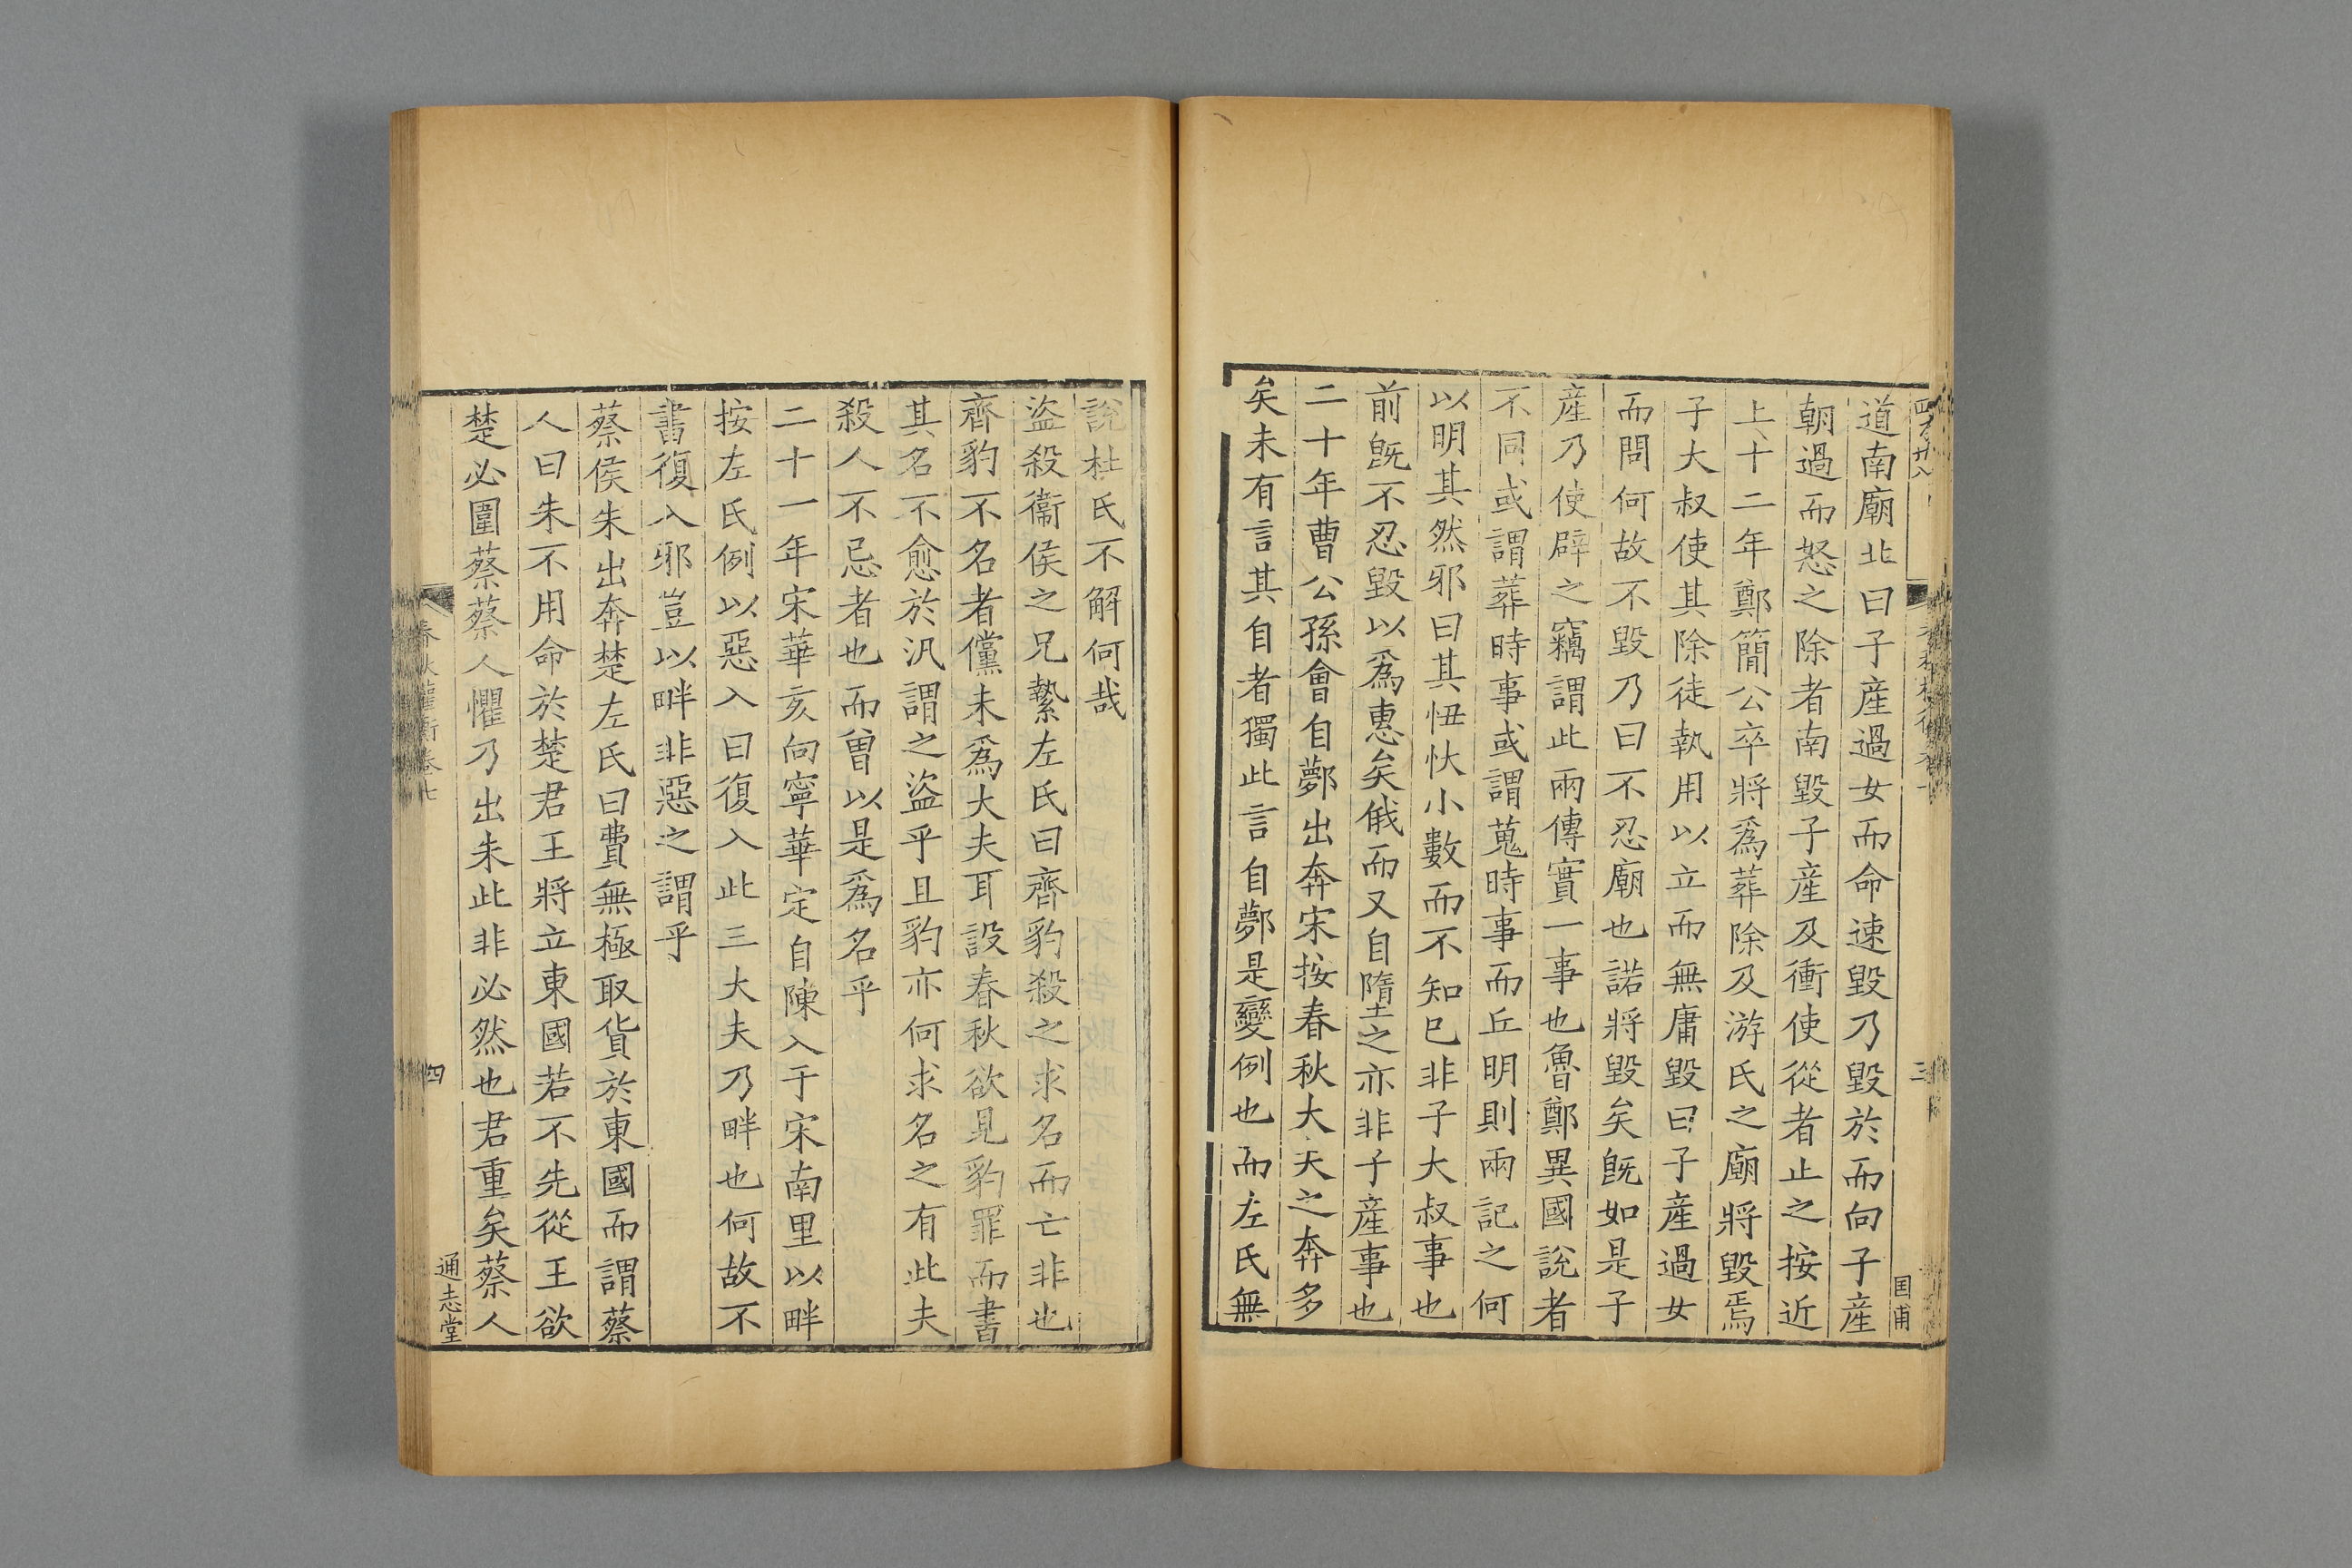 道南廟北曰子産過女而命速毀乃毀於而向子産
朝過而怒之除者南毀子産及衝使從者止之按近
上十二年鄭簡公卒將爲葬除及游氏之廟將毀焉
子大叔使其除徒執用以立而無庸毀曰子産過女
而問何故不毀乃曰不忍廟也諾將毀矣旣如是子
産乃使辟之竊謂此兩傳實一事也魯鄭異國說者
不同或謂葬時事或謂蒐時事而丘明則兩記之何
以明其然邪曰其忸忕小數而不知已非子大叔事也
前旣不忍毀以爲惠矣俄而又自隳之亦非子產事也
二十年曹公孫會自鄸出奔宋按春秋大夫之奔多
矣未有言其自者獨此言自鄸是變例也而左氏無
三
国甫
說杜氏不解何哉
盜殺衞侯之兄縶左氏曰齊豹殺之求名而亡非也
齊豹不名者儻未爲大夫耳設春秋欲見豹罪而書
其名不愈於汎謂之盜乎且豹亦何求名之有此夫
殺人不忌者也而曾以是爲名乎
二十一年宋華亥向寧華定自陳入于宋南里以畔
按左氏例以惡入曰復入此三大夫乃畔也何故不
書復入邪豈以畔非惡之謂乎
蔡侯朱出奔楚左氏曰費無極取貨於東國而謂蔡
人曰朱不用命於楚君王將立東國若不先從王欲
楚必圍蔡蔡人懼乃出朱此非必然也君重矣蔡人
春秋權衡卷七
四
通志堂